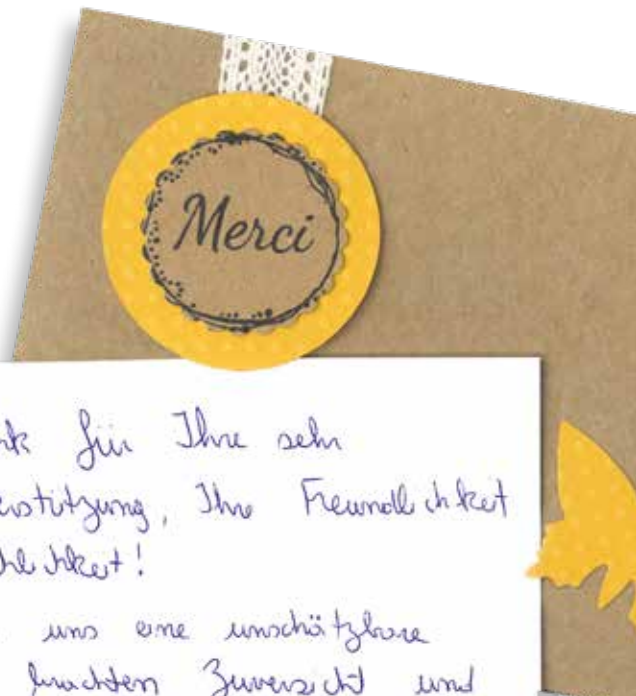 Merci
für Ihre sehr
Ihre Freundlichkeit
uns eine unschätzbare
brachten Zuversicht und